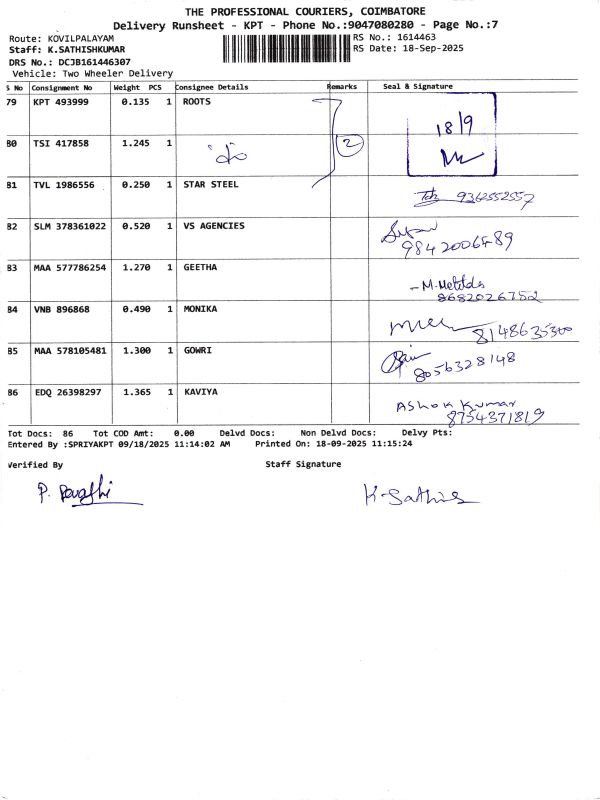 THE PROFESSIONAL COURIERS, COIMBATORE
Delivery Runsheet - KPT - Phone No.:9047080280 - Page No.:7
Route: KOVILPALAYAM RS No.: 1614463
Staff: K.SATHISHKUMAR RS Date: 18-Sep-2025
DRS No.: DCJB161446307
Vehicle: Two Wheeler Delivery
S No Consignment No Weight PCS Consignee Details Remarks Seal & Signature
79 KPT 493999 0.135 1 ROOTS 18/9
80 TSI 417858 1.245 1 2
81 TVL 1986556 0.250 1 STAR STEEL 9362552557
82 SLM 378361022 0.520 1 VS AGENCIES
83 MAA 577786254 1.270 1 GEETHA
8682026752
84 VNB 896868 0.490 1 MONIKA
85 MAA 578105481 1.300 1 GOWRI 8056328148
86 EDQ 26398297 1.365 1 KAVIYA
Ashok Kumar
8754371819
Tot Docs: 86 Tot COD Amt: 0.00 Delvd Docs: Non Delvd Docs: Delvy Pts:
Entered By :SPRIYAKPT 09/18/2025 11:14:02 AM Printed On: 18-09-2025 11:15:24
Verified By Staff Signature
K-Sathis